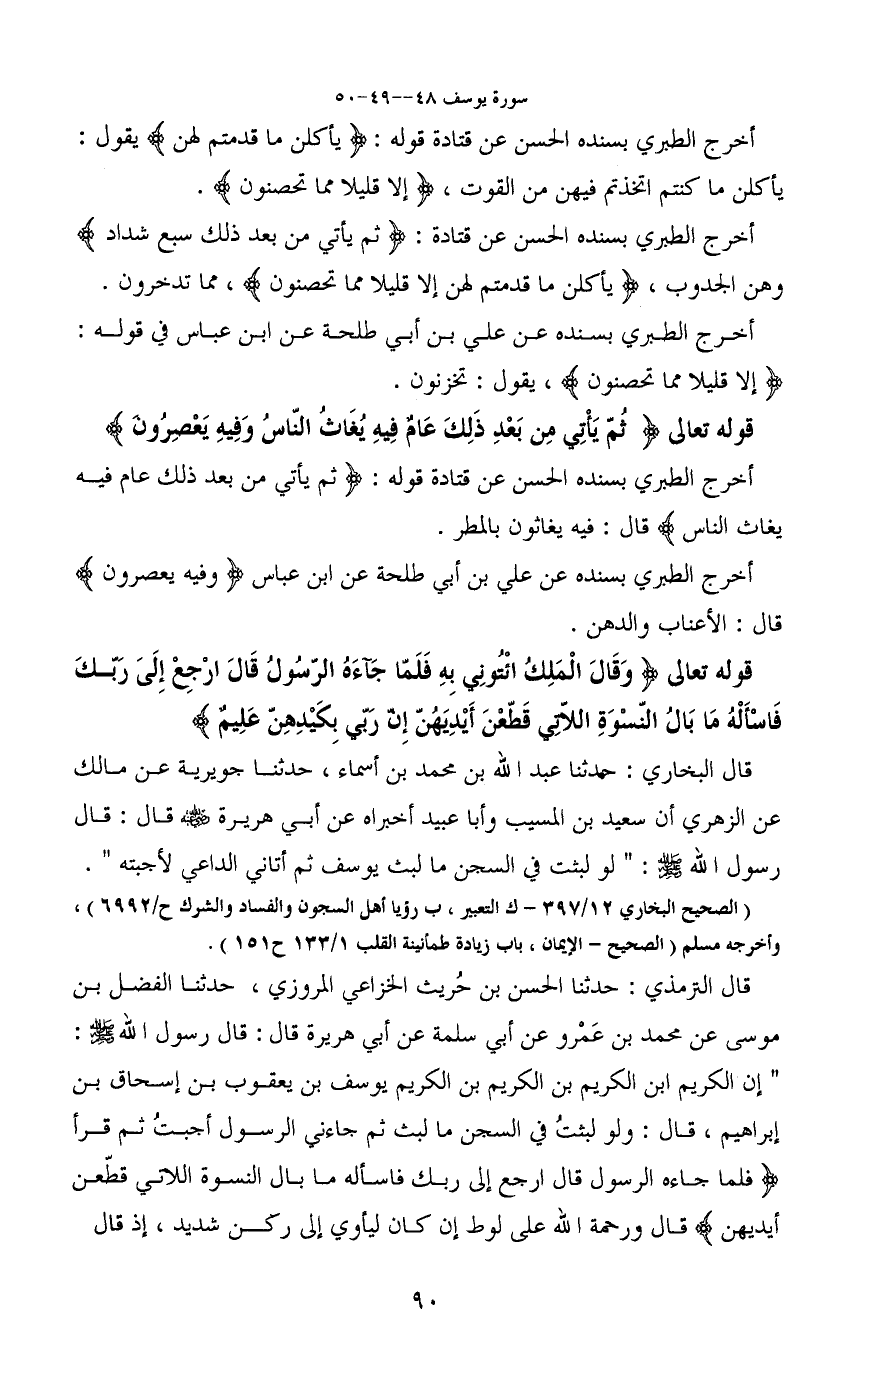 سورة يوسف ٤٨--٤٩-٥٠
أخرج الطبري بسنده الحسن عن قتادة قوله : ﴿ يأكلن ما قدمتم لهن ﴾ يقول :
يأكلن ما كنتم اتخذتم فيهن من القوت ، ﴿ إلا قليلا مما تحصنون ﴾ .
أخرج الطبري بسنده الحسن عن قتادة : ﴿ ثم يأتي من بعد ذلك سبع شداد ﴾
وهن الجدوب ، ﴿ يأكلن ما قدمتم لهن إلا قليلا مما تحصنون ﴾ ، مما تدخرون .
أخرج الطبري بسنده عن علي بن أبي طلحة عن ابن عباس في قوله :
﴿ إلا قليلا مما تحصنون ﴾ ، يقول : تخزنون .
قوله تعالى ﴿ ثُمّ يَأْتِي مِن بَعْدِ ذَلِكَ عَامٌ فِيهِ يُغَاثُ النّاسُ وَفِيهِ يَعْصِرُونَ ﴾
أخرج الطبري بسنده الحسن عن قتادة قوله : ﴿ ثم يأتي من بعد ذلك عام فيه
يغاث الناس ﴾ قال : فيه يغاثون بالمطر .
أخرج الطبري بسنده عن علي بن أبي طلحة عن ابن عباس ﴿ وفيه يعصرون ﴾
قال : الأعناب والدهن .
قوله تعالى ﴿ وَقَالَ الْمَلِكُ ائْتُونِي بِهِ فَلَمّا جَآءَهُ الرّسُولُ قَالَ ارْجِعْ إِلَىَ رَبّكَ
فَاسْأَلْهُ مَا بَالُ النّسْوَةِ اللاّتِي قَطّعْنَ أَيْدِيَهُنّ إِنّ رَبّي بِكَيْدِهِنّ عَلِيمٌ ﴾
قال البخاري : حدثنا عبد الله بن محمد بن أسماء ، حدثنا جويرية عن مالك
عن الزهري أن سعيد بن المسيب وأبا عبيد أخبراه عن أبي هريرة ﷺ قال : قال
رسول الله ﷺ : " لو لبثت في السجن ما لبث يوسف ثم أتاني الداعي لأجبته " .
( الصحيح البخاري ٣٩٧/١٢ – ك التعبير ، ب رؤيا أهل السجون والفساد والشرك ح/٦٩٩٢ ) ،
وأخرجه مسلم ( الصحيح – الإيمان ، باب زيادة طمأنينة القلب ١٣٣/١ ح١٥١ ) .
قال الترمذي : حدثنا الحسن بن حُريث الخزاعي المروزي ، حدثنا الفضل بن
موسى عن محمد بن عَمْرو عن أبي سلمة عن أبي هريرة قال : قال رسول الله ﷺ :
" إن الكريم ابن الكريم بن الكريم بن الكريم يوسف بن يعقوب بن إسحاق بن
إبراهيم ، قال : ولو لبثتُ في السجن ما لبث ثم جاءني الرسول أجبتُ ثم قرأ
﴿ فلما جاءه الرسول قال ارجع إلى ربك فاسأله ما بال النسوة اللاتي قطّعن
أيديهن ﴾ قال ورحمة الله على لوط إن كان ليأوي إلى ركن شديد ، إذ قال
٩٠